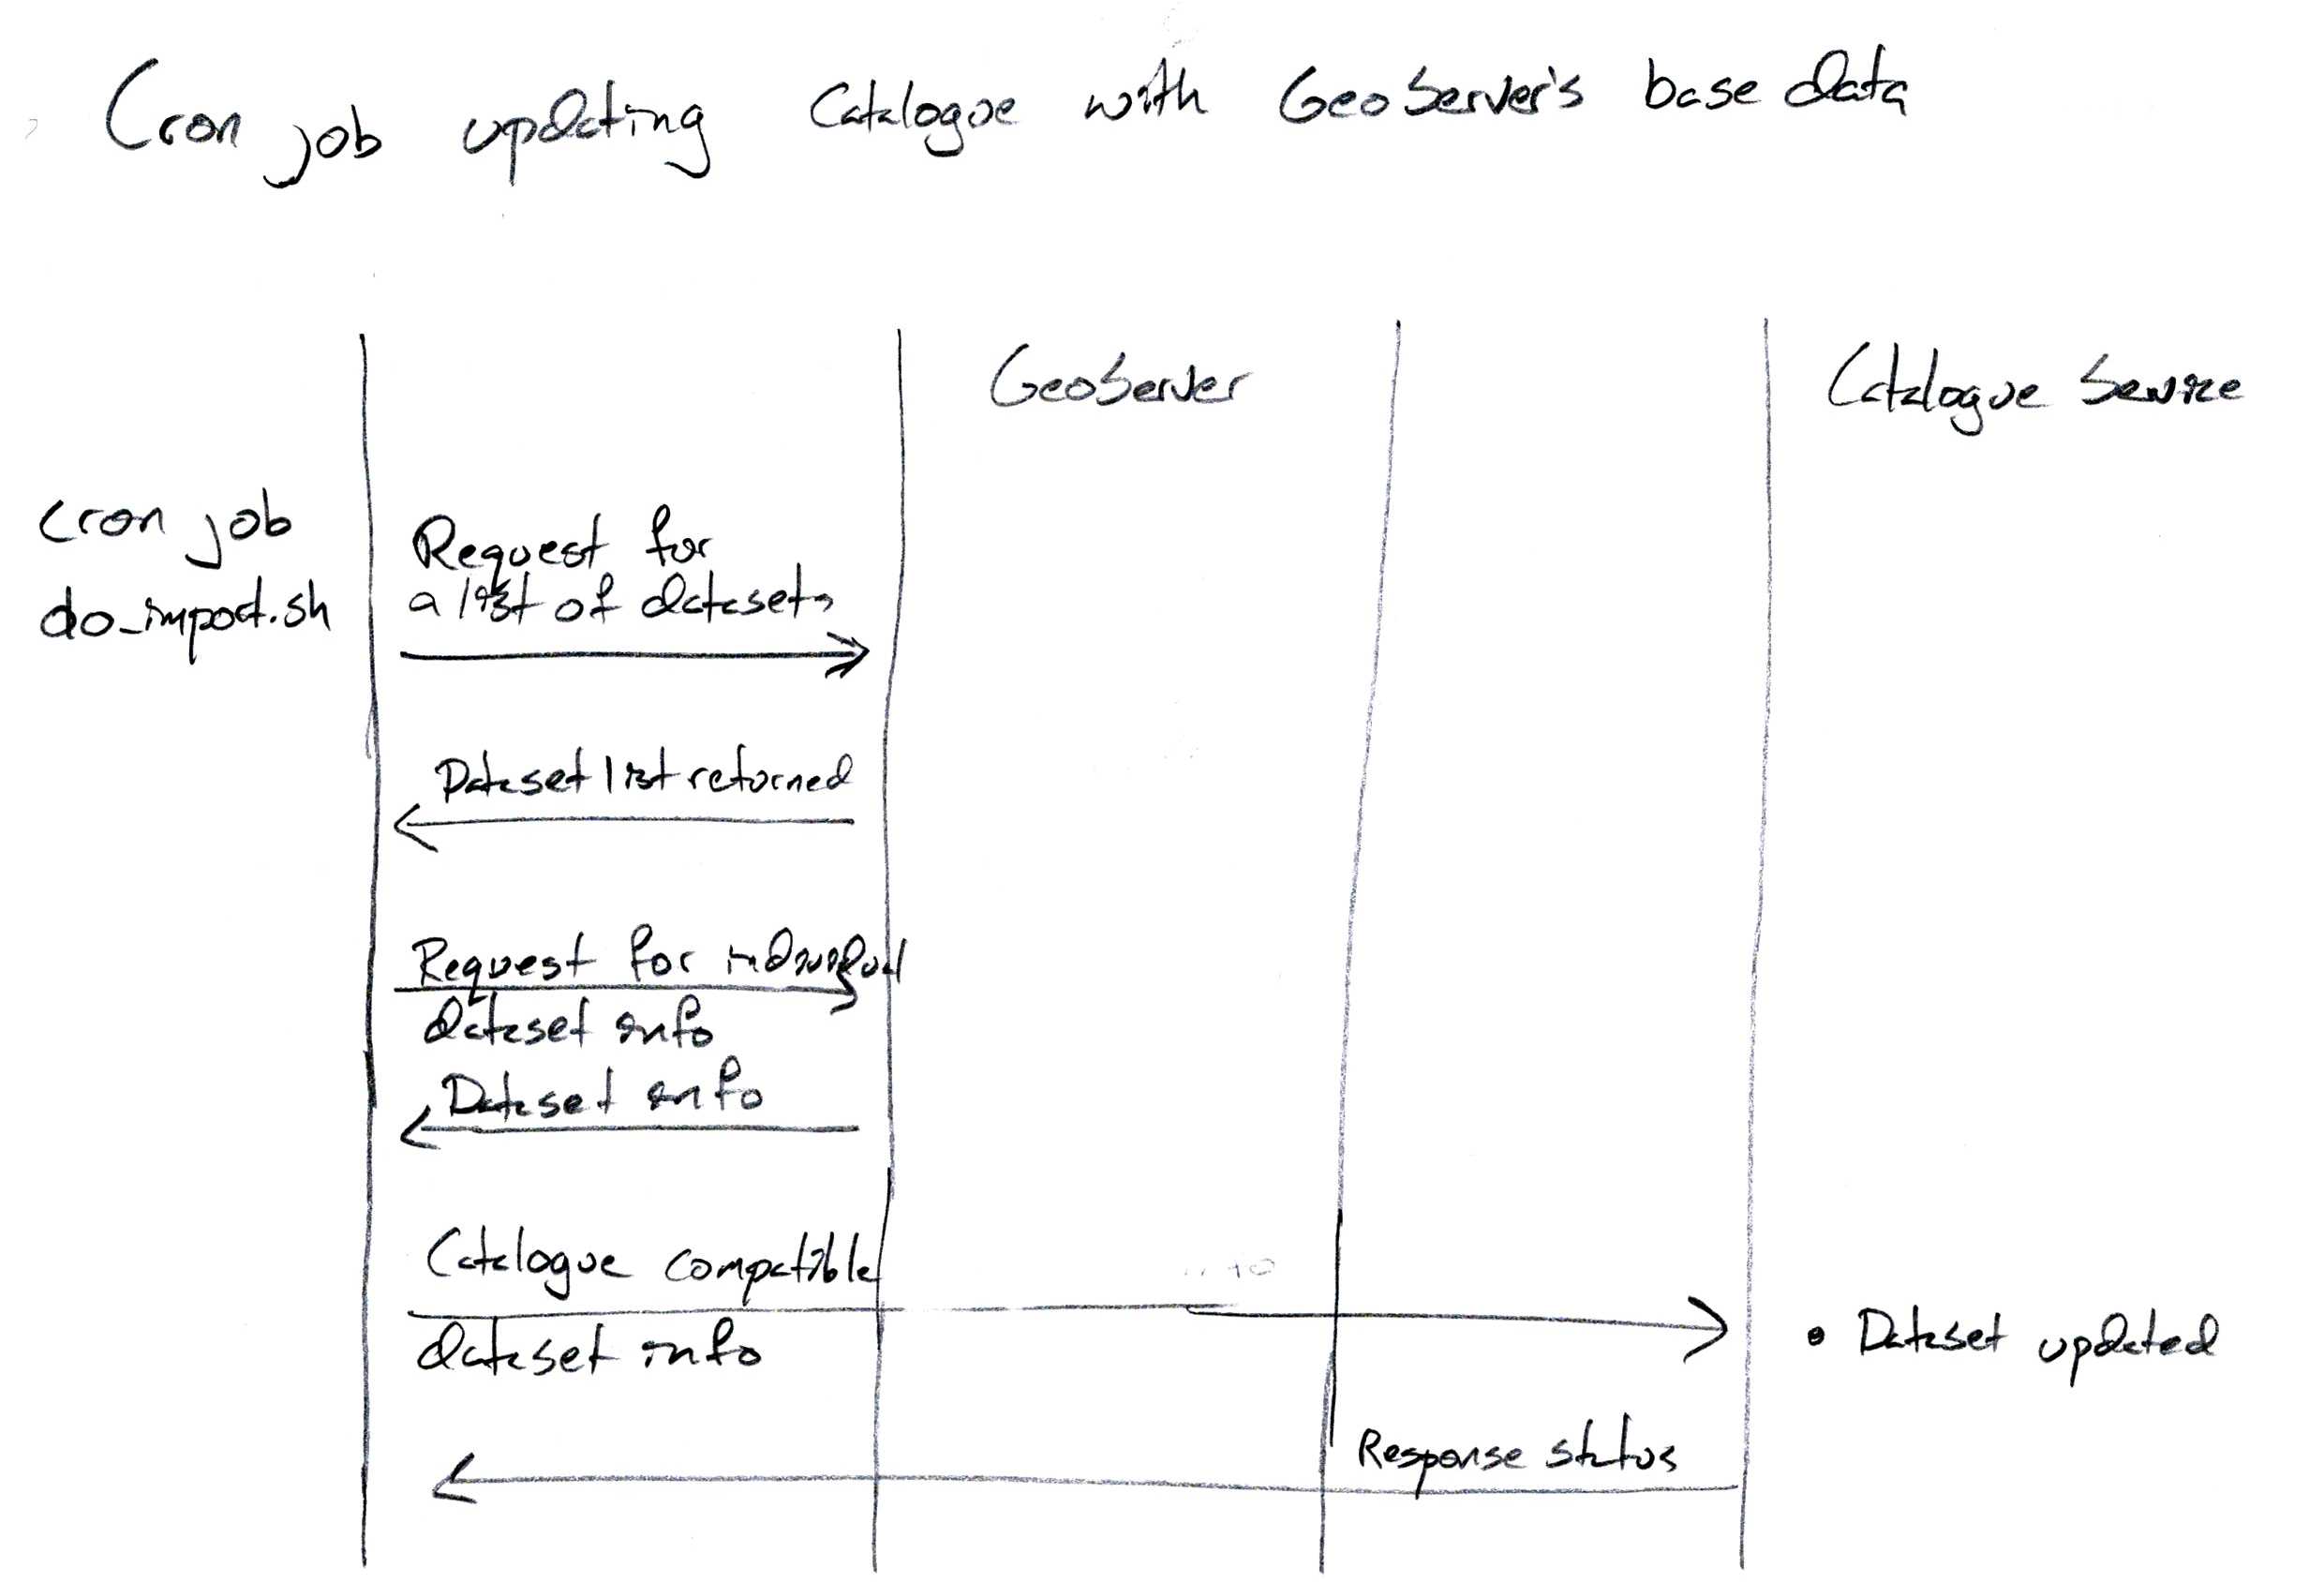 Cron job updating Catalogue with GeoServer's base data
GeoServer
Catalogue Service
cron job
do_import.sh
Request for
a list of datasets
Dataset list returned
Request for individual
dataset info
Dataset info
Catalogue compatible
dataset info
• Dataset updated
Response status